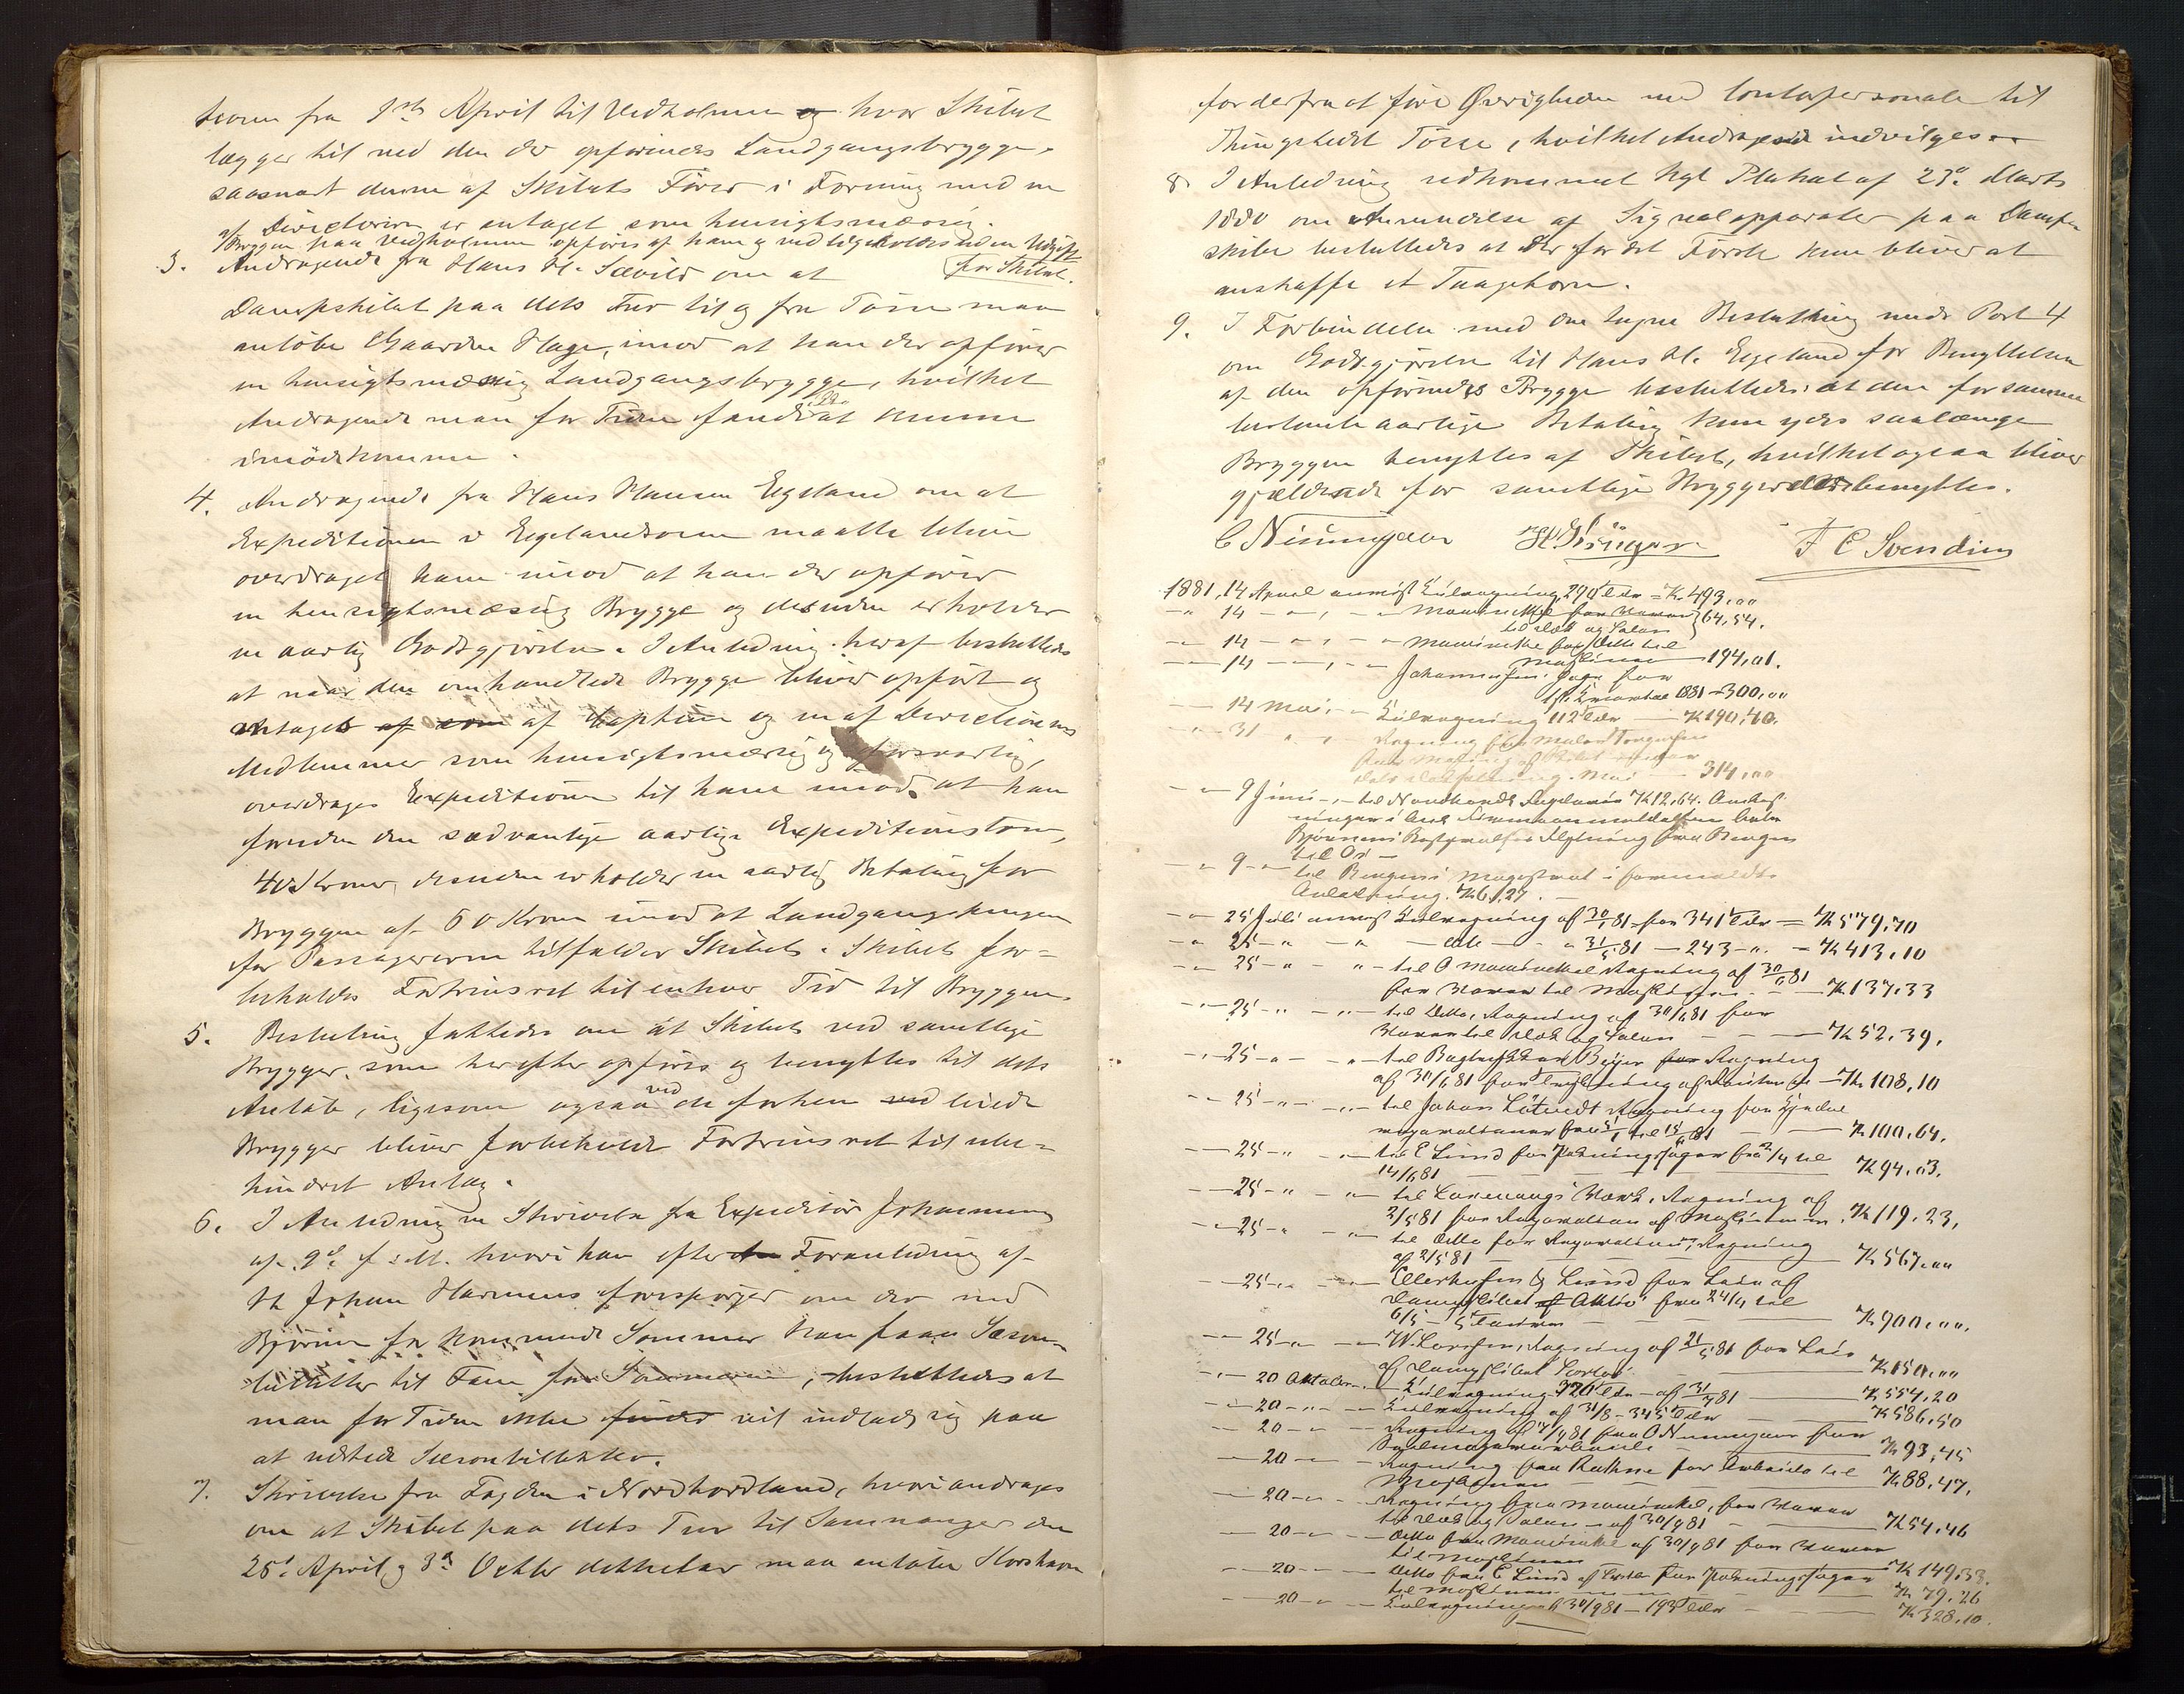 fra 1ste April til Vedholmen og hvor Skibet
lægger til ved den der opførendes Landgangsbrygge,
saasnart denne af Skibets Fører i Forening med en
af Directionen er antaget som hensigtsmæssig.
Bryggen paa Vedholmen opføres af ham og vedligeholdes uden Udgift
for Skibet.
3. Andragende fra Hans H. Sævild om at
Dampskibet paa dets Tur til og fra Tösse maa
anløbe Gaarden Hage, imod at han der opfører
en hensigtsmæssig Landgangsbrygge, hvilket
Andragende man for Tiden fandt ikke at kunne
imødekomme.
4. Andragende fra Hans Hansen Eegeland om at
Expeditionen i Eegelandsosen maatte blive
overdraget ham imod at han der opfører
en hensigtsmæssig Brygge og desuden erholder
en aarlig Godtgjørelse. I Anledning heraf besluttedes
at naar den omhandlede Brygge bliver opført og
antaget af som af Captein og en af Directionens
Medlemmer som hensigtsmæssig og forsvarlig,
overdrages Expeditionen til ham imod, at han
foruden den sædvanlige aarlige Expeditionsløn,
40 Kroner, desuden erholder en aarlig Betaling for
Bryggen af 60 Kroner imod at Landgangspengen
for Passagererne tilfalder Skibet. Skibet for-
beholdes Fortrinsret til enhver Tid til Bryggen.
5. Beslutning fattedes om at Skibet ved samtlige
Brygger, som herefter opføres og benyttes til dets
Anløb, ligesom ogsaa ved de forhen ved
Brygger bliver forbeholdt Fortrinsret til ube-
hindret Anlæg.
6. I Anledning en Skrivelse fra Expeditør Johannessen
af 9de f: M. hvori han efter Foranledning af
Hr Johan Harmens forespørger om der med
Bjørnen for kommende Sommer kan faaes Sæson-
billetter til Fane for Sommeren, besluttedes at
man for Tiden ikke finder vil indlade sig paa
at udstede Sæsonbilletter.
7. Skrivelse fra Fogden i Nordhordland, hvori andrages
om at Skibet paa dets Tur til Samnanger den
25de April og 3de Octbr dettehear maa anløbe Korshavn
for derfra at føre Øvrigheden med Contorpersonale til
Thingstedet Tösse, hvilket Andragende indvilges.
8 I Anledning vedkommet Kgl Plakat af 23de Marts
1880 om Anvendelse af Signalapparater paa Damp-
skibe besluttedes at der for det Første kun bliver at
anskaffe et Taagehorn.
9. I Forbindelse med den tagne Beslutning under Post 4
om Godtgjørelse til Hans H. Eegeland for Benyttelsen
af den opførendes Brygge besluttedes: at den for samme
bestemte aarlige Betaling kun ydes saalænge
Bryggen benyttes af Skibet, hvilket ogsaa bliver
gjældende for samtlige Brygger der benyttes.
C Ninimgaar F C Svendsen
1881, 14 April anvist Kulregning 290 Tdr = K. 493,00
" 14 - " , - " Mowinckel for Varer
til Dæk og Salon } 64,54.
" 14 - " , - " Mowinckel for Ditto til
Maskinen 194,01.
" 14 - " , - " Johannesen, Gage for
1ste Kvartal 1881 - 300,00
" 14 Mai, - Kulregning 112 Tdr - K 190,40.
" 31 " , Regning fra Maler Torgersen
for Maling af Skibet
Mai - 314,00
" 9 Juni -,- til Nordhordl. Fogderi K 12,64. Anvis-
ninger i Anl.
Bjørnens fra Bergen
til Os -
" 9 - " til Bergens Magistrat i formeldte
Anledning. K 6,27. -
" 25 Juli anvist Kulregning af 30/6 81 for 341 Tdr = K 579,70
" 25 - " - " - dito - " 31/5 81 - 243 - " - K 413,10
" 25 - " - " - til O Mowinckel Regning af 30/6 81
for Varer til Maskinen - K 137,33
" 25 - " - " - til Ditto, Regning af 30/6 81 for
Varer til Dæk og Salon - - K 52,39.
" 25 - " - " - til Bogtrykker Beyer for Regning
af 30/6 81 for Trykning af Ruter - K 108,10
" 25 - " - " - til Johan Regning for
reparationer fra til 81 - K 100,64.
" 25 - " - " - til C Lund for Pakningssager fra 2/4 til
14/6 81 K 94,03.
" 25 - " - " til Laxevaags Værk, Regning af
2/5 81 for Reparation af Maskinen. K 119,23,
" 25 - " - " til Ditto for Reparation, Regning
af 2/5 81 K 567,00
" 25 - " - " Ellerhusen & Lund for Leie af
Dampskibet af Aktiv fra 24/4 til
6/5 - K 900,00.
" 25 - " - " W. Larssen, Regning af 21/5 81 for Leie
af Dampskibet K 150,00
" 20 Oktober - Kulregning 326 Tdr - af 31/7 81 K 554,20
" 20 - " - Kulregning af 31/8 - 345 Tdr K 586,50
" 20 - " Regning af 81 fra for
K 93,45
" 20 - " - Regning fra for Arbeide til
Maskinen K 88,47,
" 20 - " - Regning fra Mowinckel, for Varer
til Dæk og Salon - af 30/9 81 K 54,46
" 20 - " - Ditto fra Mowinckel af 30/9 81 for Varer
til Maskinen K 149,33.
" 20 - " - Ditto fra C Lund for Pakningssager
til Maskinen K 79,26
" 20 - " - Kulregning 30/9 81 - 193 Tdr - K 328,10.